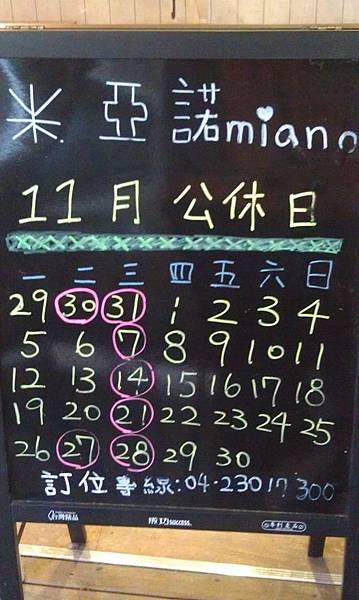 米.亞諾miano
11月公休日
一 二 三 四 五 六 日
29 30 31 1 2 3 4
5 6 7 8 9 10 11
12 13 14 15 16 17 18
19 20 21 22 23 24 25
26 27 28 29 30
訂位專線:04-23017300
台灣精品 成功success 專利產品